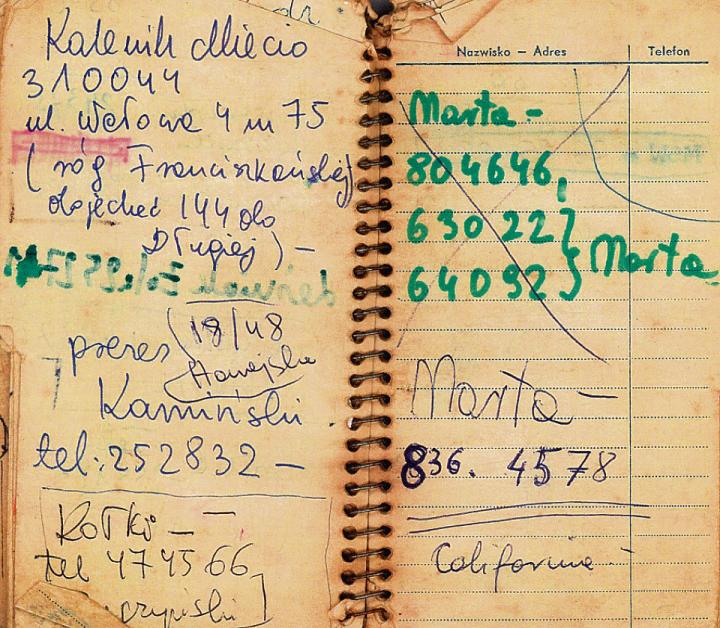 dr.
Kalenik Miecio
310044
ul. Wałowa 4 m 75
(róg Franciszkańskiej
dojechać 144 do
Długiej) –
prezes
18/48
Kamiński
tel: 252832 –
Kotki –
tel 474566
Nazwisko – Adres Telefon
Marta –
804646,
63022
64092 } Marta
Marta –
836. 4578
California –